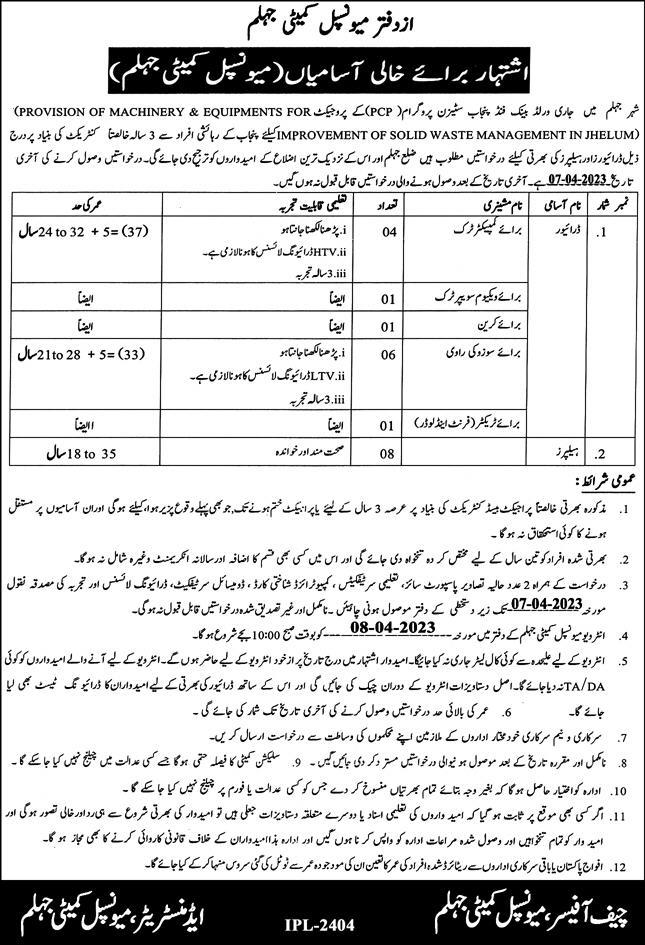 از دفتر میونسپل کمیٹی جہلم
اشتہار برائے خالی آسامیاں (میونسپل کمیٹی جہلم)
شہر جہلم میں جاری ورلڈ بینک فنڈ پنجاب سٹیزن پروگرام (PCP) کے پروجیکٹ PROVISION OF MACHINERY & EQUIPMENTS FOR)
(IMPROVEMENT OF SOLID WASTE MANAGEMENT IN JHELUM کیلئے پنجاب کے رہائشی افراد سے 3 سالہ خالصتاً کنٹریکٹ کی بنیاد پر درج
ذیل ڈرائیورز اور ہیلپرز کی بھرتی کیلئے درخواستیں مطلوب ہیں ضلع جہلم اور اس کے نزدیک ترین اضلاع کے امیدواروں کو ترجیح دی جائے گی۔ درخواستیں وصول کرنے کی آخری
تاریخ 07-04-2023 ہے۔ آخری تاریخ کے بعد وصول ہونے والی درخواستیں قابل قبول نہ ہوں گیں۔
نمبر شمار نام آسامی نام مشینری تعداد تعلیمی قابلیت تجربہ عمر کی حد
1. ڈرائیور برائے کمپیکٹر ٹرک 04 i. پڑھنا لکھنا جانتا ہو 24 to 32 + 5= (37) سال
ii. HTV ڈرائیونگ لائسنس کا ہونا لازمی ہے۔
iii. 3 سالہ تجربہ
برائے ویکیوم سویپر ٹرک 01 ایضاً ایضاً
برائے کرین 01 ایضاً ایضاً
برائے سوزوکی راوی 06 i. پڑھنا لکھنا جانتا ہو 21 to 28 + 5= (33) سال
ii. LTV ڈرائیونگ لائسنس کا ہونا لازمی ہے۔
iii. 3 سالہ تجربہ
برائے ٹریکٹر (فرنٹ اینڈ لوڈر) 01 ایضاً اایضاً
2. ہیلپرز 08 صحت مند اور خواندہ 18 to 35 سال
عمومی شرائط:
1. مذکورہ بھرتی خالصتاً پراجیکٹ بیسڈ کنٹریکٹ کی بنیاد پر عرصہ 3 سال کے لیئے یا پراجیکٹ ختم ہونے تک، جو بھی پہلے وقوع پزیر ہوا، کیلئے ہوگی اور ان آسامیوں پر مستقل
ہونے کا کوئی استحقاق نہ ہوگا۔
2. بھرتی شدہ افراد کو تین سال کے لیے مختص کردہ تنخواہ دی جائے گی اور اس میں کسی بھی قسم کا اضافہ اور سالانہ انکریمنٹ وغیرہ شامل نہ ہوگا۔
3. درخواست کے ہمراہ 2 عدد حالیہ تصاویر پاسپورٹ سائز، تعلیمی سرٹیفکیٹس، کمپیوٹرائزڈ شناختی کارڈ، ڈومیسائل سرٹیفکیٹ، ڈرائیونگ لائسنس اور تجربہ کی مصدقہ نقول
مورخہ 07-04-2023 تک زیر دستخطی کے دفتر موصول ہونی چاہیئں۔ نامکمل اور غیر تصدیق شدہ درخواستیں قابل قبول نہ ہوگی۔
4. انٹرویو میونسپل کمیٹی جہلم کے دفتر میں مورخہ 08-04-2023 کو بوقت صبح 10:00 بجے شروع ہوگا۔
5. انٹرویو کے لیے علیحدہ سے کوئی کال لیٹر جاری نہ کیا جائیگا۔ امیدوار اشتہار میں درج تاریخ پر از خود انٹرویو کے لیے حاضر ہوں گے۔ انٹرویو کے لیے آنے والے امیدواروں کو کوئی
TA/DA نہ دیا جائے گا۔ اصل دستاویزات انٹرویو کے دوران چیک کی جائیں گی اور اس کے ساتھ ڈرائیور کی بھرتی کے لیے امیدواران کا ڈرائیونگ ٹیسٹ بھی لیا
جائے گا۔ 6. عمر کی بالائی حد درخواستیں وصول کرنے کی آخری تاریخ تک شمار کی جائے گی۔
7. سرکاری و نیم سرکاری خودمختار اداروں کے ملازمین اپنے محکموں کی وساطت سے درخواست ارسال کریں۔
8. نامکمل اور مقررہ تاریخ کے بعد موصول ہونیوالی درخواستیں مسترد کر دی جائیں گیں۔ 9. سلیکشن کمیٹی کا فیصلہ حتمی ہوگا جسے کسی عدالت میں چیلنج نہیں کیا جا سکے گا
10. ادارہ کو اختیار حاصل ہوگا کہ بغیر وجہ بتائے تمام بھرتیاں منسوخ کر دے جس کو کسی عدالت یا فورم پر چیلنج نہیں کیا جا سکے گا
11. اگر کسی بھی موقع پر ثابت ہو گیا کہ امیدواروں کی تعلیمی اسناد یا دوسرے متعلقہ دستاویزات جعلی ہیں تو امیدوار کی بھرتی شروع سے ہی رد اور خالی تصور ہوگی اور
امیدوار کو تمام تنخواہیں اور وصول شدہ مراعات ادارہ کو واپس کرنا ہوں گیں اور ادارہ ہذا امیدواران کے خلاف قانونی کاروائی کرنے کا بھی مجاز ہوگا۔
12. افواج پاکستان یا باقی سرکاری اداروں سے ریٹائرڈ شدہ افراد کی عمر کا تعین ان کی موجودہ عمر سے ٹوٹل کی گئی سروس منہا کر کے کیا جائے گا۔
چیف آفیسر، میونسپل کمیٹی جہلم ایڈمنسٹریٹر، میونسپل کمیٹی جہلم
IPL-2404